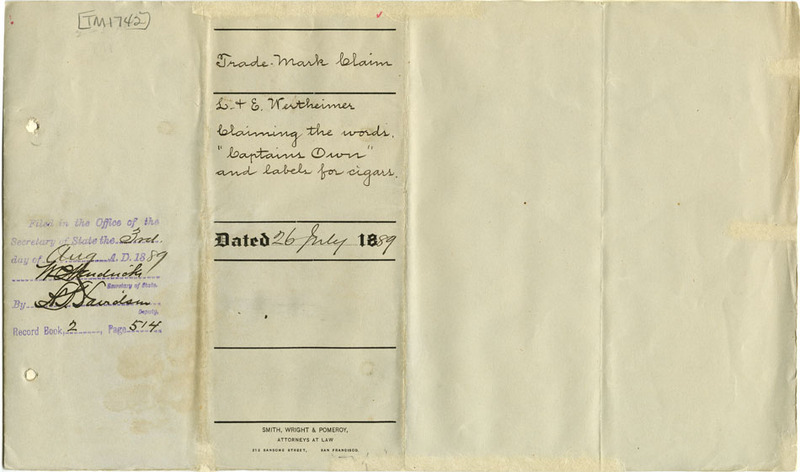 [TM1742]
Trade-Mark Claim
L. & E. Wertheimer
Claiming the words,
"Captains Own"
and labels for cigars.
Dated 26 July 1889
Filed in the Office of the
Secretary of State the 3rd
day of Aug A.D. 1889
W C Hendricks
Secretary of State.
By
Deputy.
Record Book, 2, Page 514
SMITH, WRIGHT & POMEROY,
ATTORNEYS AT LAW
SANSOME STREET, SAN FRANCISCO.